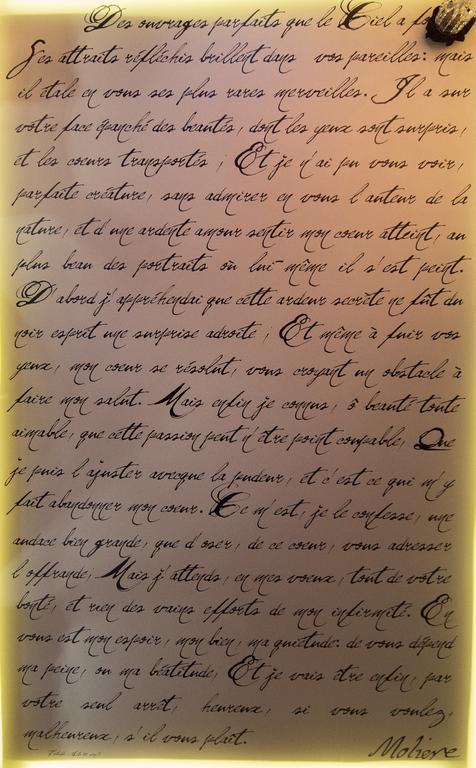 Des ouvrages parfaits que le Ciel a
Ses attraits réfléchis brillent dans vos pareilles: mais
il étale en vous ses plus rares merveilles. Il a sur
votre face épanché des beautés, dont les yeux sont surpris,
et les coeurs transportés ; Et je n'ai pu vous voir,
parfaite créature, sans admirer en vous l'auteur de la
nature, et d'une ardente amour sentir mon coeur atteint, au
plus beau des portraits où lui-même il s'est peint.
D'abord j'appréhendai que cette ardeur secrète ne fût du
noir esprit une surprise adroite ; Et même à fuir vos
yeux, mon coeur se résolut, vous croyant un obstacle à
faire mon salut. Mais enfin je connus, ô beauté toute
aimable, que cette passion peut n'être point coupable, Que
je puis l'ajuster avecque la pudeur, et c'est ce qui m'y
fait abandonner mon coeur. Ce m'est, je le confesse, une
audace bien grande, que d'oser, de ce coeur, vous adresser
l'offrande; Mais j'attends, en mes voeux, tout de votre
bonté, et rien des vains efforts de mon infirmité. En
vous est mon espoir, mon bien, ma quiétude. de vous dépend
ma peine, ou ma béatitude, Et je vais être enfin, par
votre seul arrêt, heureux, si vous voulez,
malheureux, s'il vous plaît.
Moliere